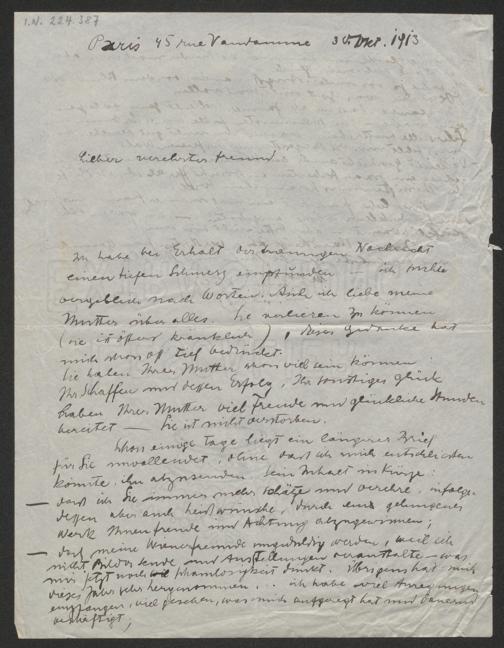 I.N. 224.387
Paris 45 rue Vandamme 30. Okt. 1913
Lieber verehrter Freund
Ich habe bei Erhalt der traurigen Nachricht
einen tiefen Schmerz empfunden — ich suchte
vergeblich nach Worten. Auch ich liebe meine
Mutter über alles. Sie verlieren zu können
(sie ist öfters kränklich), dieser Gedanke hat
mich schon oft tief bedrückt.
Sie haben Ihrer Mutter schon viel sein können:
Ihr Schaffen und dessen Erfolg, Ihr sonstiges Glück
haben Ihrer Mutter viel Freude und glückliche Stunden
bereitet — Sie ist nicht verstorben.
Schon einige Tage liegt ein längerer Brief
für Sie unvollendet, ohne daß ich mich entschließen
könnte, ihn abzusenden. Sein Inhalt in Kürze:
— daß ich Sie immer mehr schätze und verehre, infolge-
dessen aber auch heiß wünsche, durch ein gelungenes
Werk Ihnen Freude und Achtung abzugewinnen;
— daß meine Wienerfreunde ungeduldig werden, weil ich
nicht Bilder sende und Ausstellungen veranstalte — was
mir jetzt noch Schamlosigkeit dünkt. Übrigens hat mich
dieses Jahr sehr hergenommen. ich habe viel Anregungen
empfangen, viel gesehen, was mich aufgeregt hat und dauernd
beschäftigt;